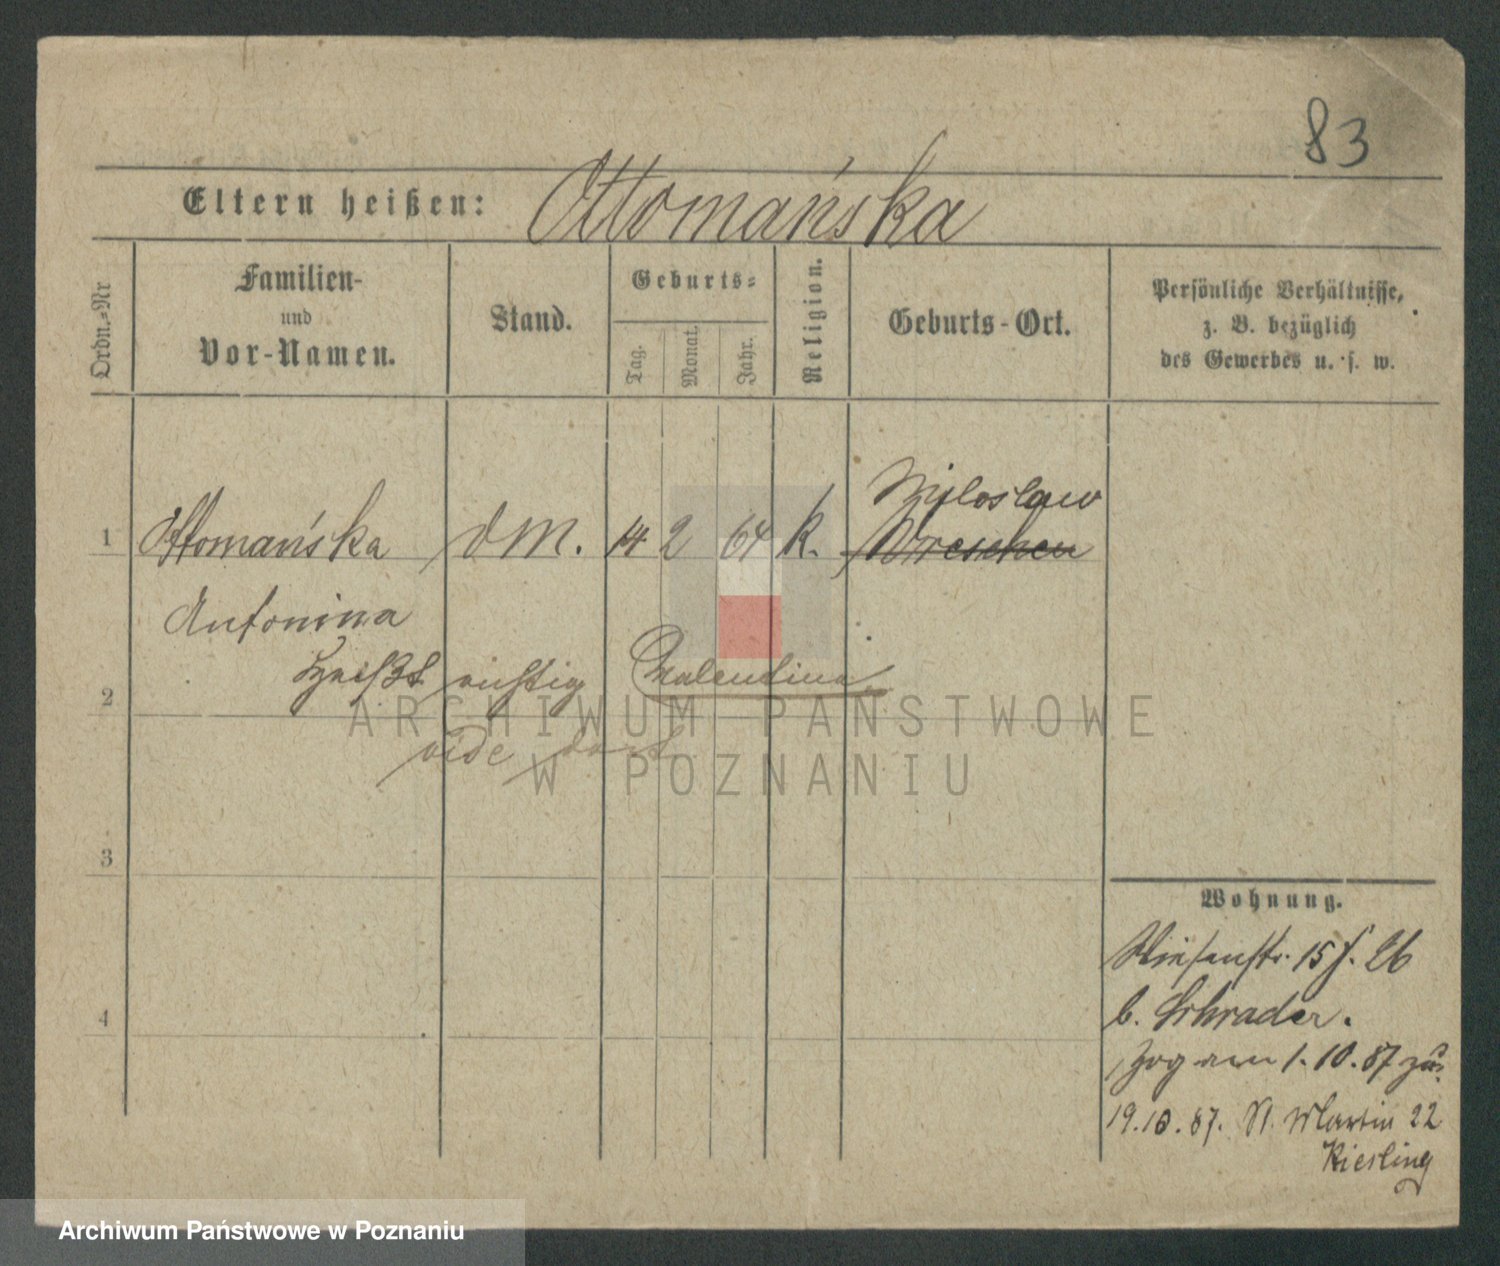 83
Eltern heißen: Ottomańska
Ordn.-Nr
Familien-
und
Vor-Namen.
Stand.
Geburts-
Tag.
Monat.
Jahr.
Religion.
Geburts-Ort.
Persönliche Verhältnisse,
z. B. bezüglich
des Gewerbes u. s. w.
Miloslaw
1 Ottomańska DM. 14 2 64 K. Wreschen
Antonina
heißt richtig Valentina
2
vide dort
3
4
Wohnung.
Wiesenstr. 15 f. 26
b. Schrader.
zog am 1.10.87 zu.
19.10.87. St. Martin 22
Kiesling
ARCHIWUM PAŃSTWOWE
W POZNANIU
Archiwum Państwowe w Poznaniu